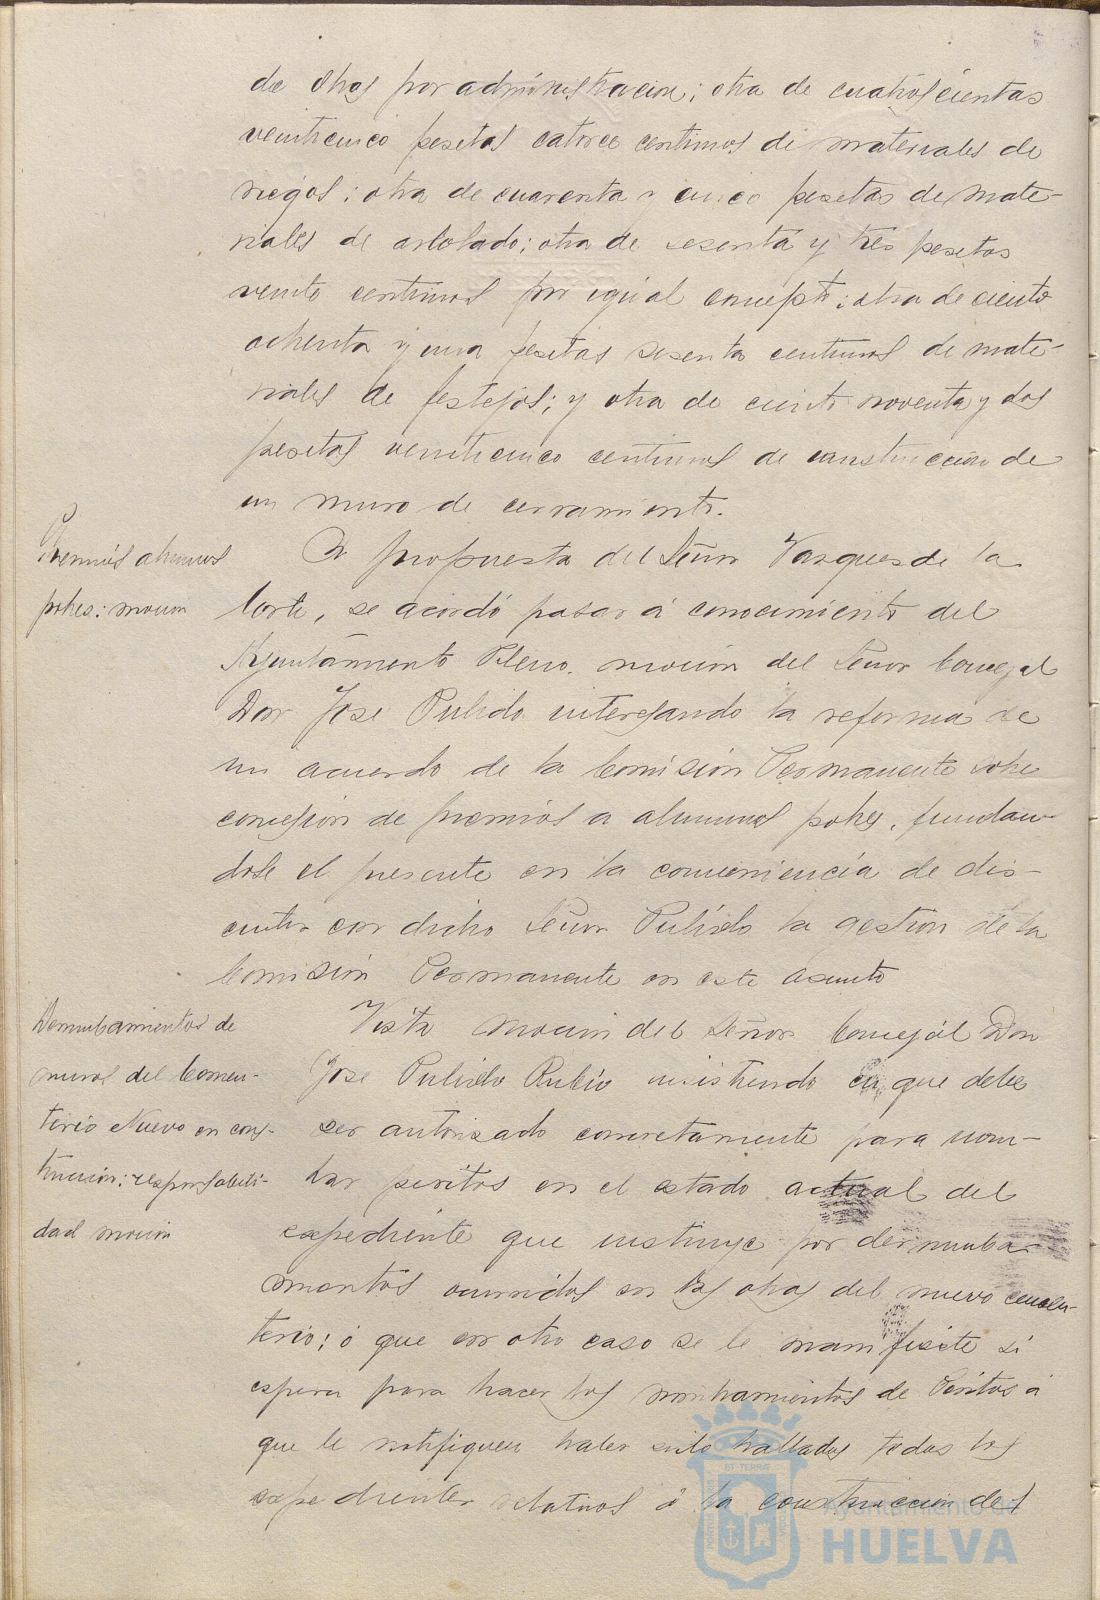 de obras por administracion; otra de cuatroscientas
veinticinco pesetas catorce centimos de materiales de
riegos; otra de cuarenta y cinco pesetas de mate-
riales de arbolado; otra de sesenta y tres pesetas
veinte centimos por igual concepto; otra de ciento
ochenta y una pesetas sesenta centimos de mate-
riales de festejos; y otra de ciento noventa y dos
pesetas veinticinco centimos de construccion de
un muro de cerramiento.
Premios alumnos
pobres: mocion
A propuesta del Señor Vazquez de la
Corte, se acordó pasar á conocimiento del
Ayuntamiento Pleno, mocion del Señor Concejal
Don Jose Pulido interesando la reforma de
un acuerdo de la Comisión Permanente sobre
concesion de premios a alumnos pobres, fundan-
dose el presente en la conveniencia de dis-
cutir con dicho Señor Pulido la gestion de la
Comisión Permanente en este asunto
Derrumbamientos de
muros del Cemen-
terio Nuevo en cons-
truccion: responsabili-
dad mocion
Vista mocion del Señor Concejal Don
Jose Pulido Rubio insistiendo en que debe
ser autorizado concretamente para nom-
brar peritos en el estado actual del
expediente que instruye por derrumba-
mientos ocurridos en las obras del nuevo cemen-
terio; ó que en otro caso se le manifieste si
espera para hacer los nombramientos de Peritos á
que le notifiquen haber sido hallados todos los
expedientes relativos á la construccion del
ET TERRÆ
Ayuntamiento de
HUELVA